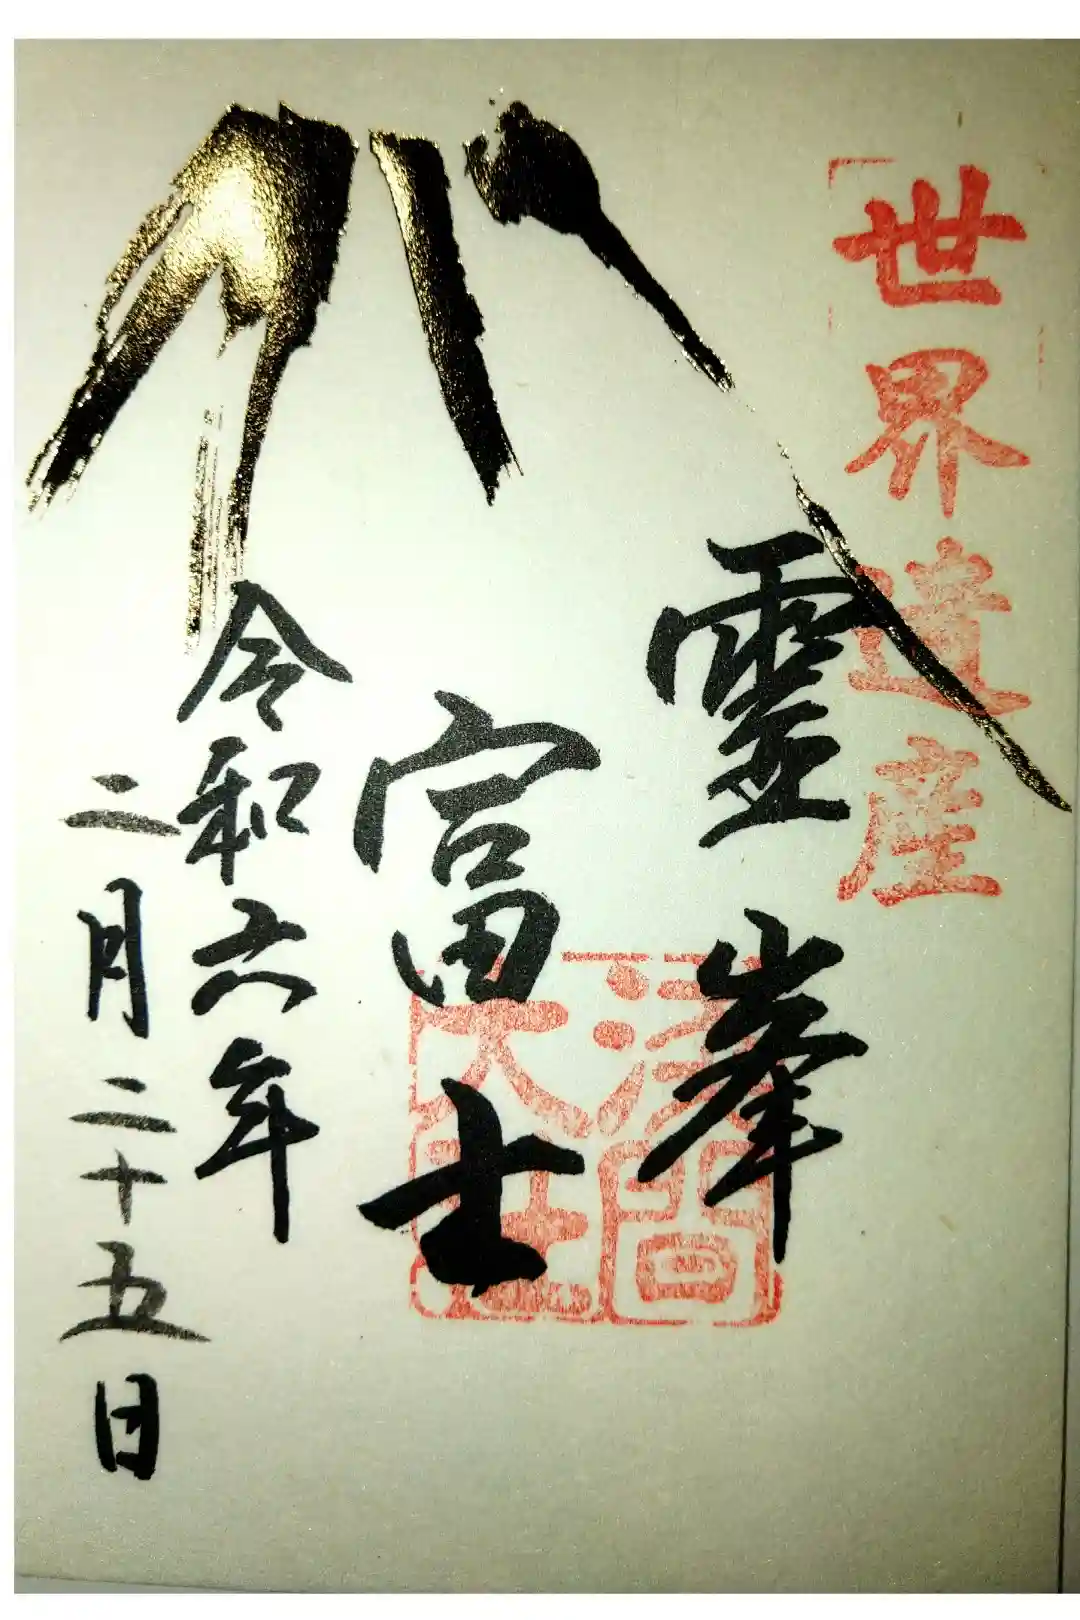 世界遺産
霊峯
富士
浅間
大社
令和六年
二月二十五日